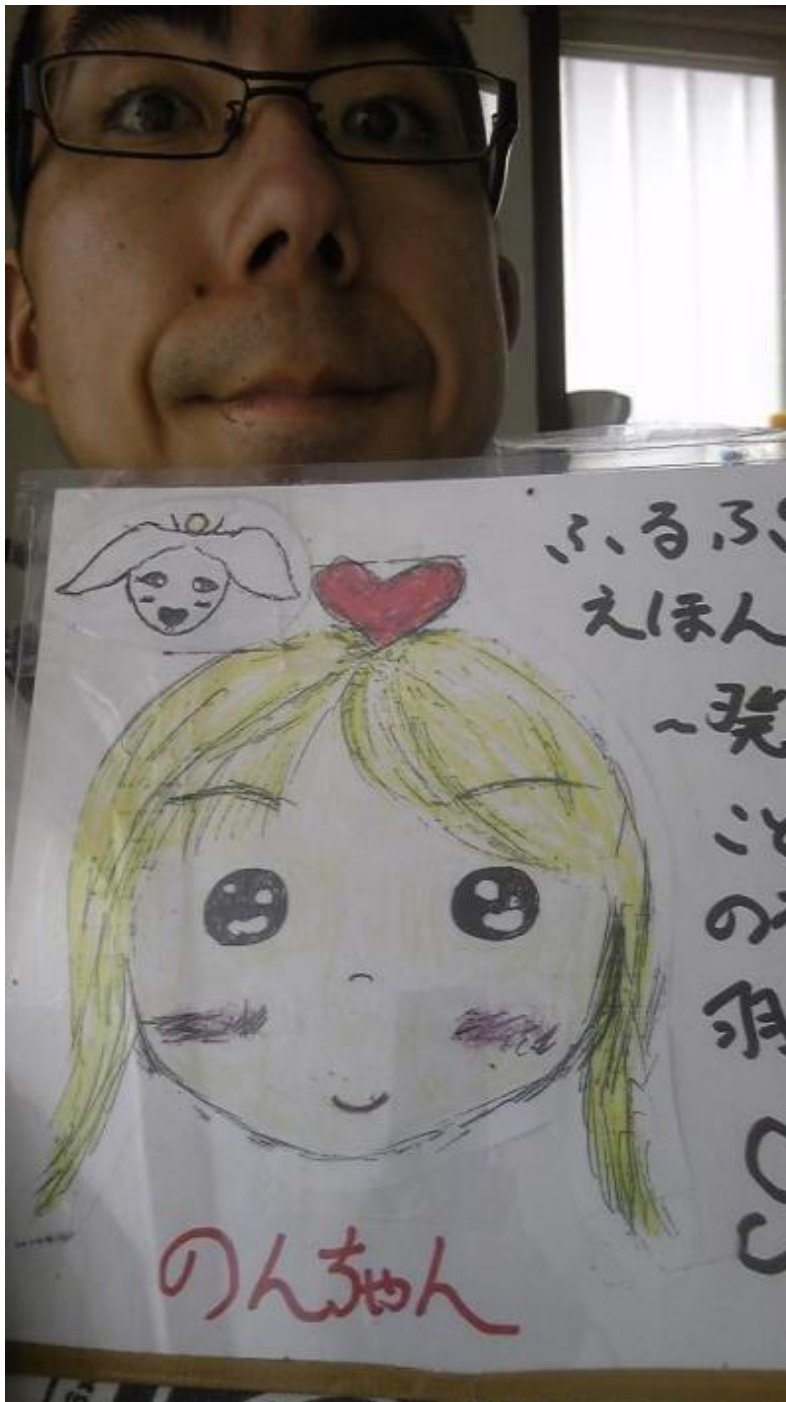 ふるふ
えほん
～発
こと
の
羽
のんちゃん